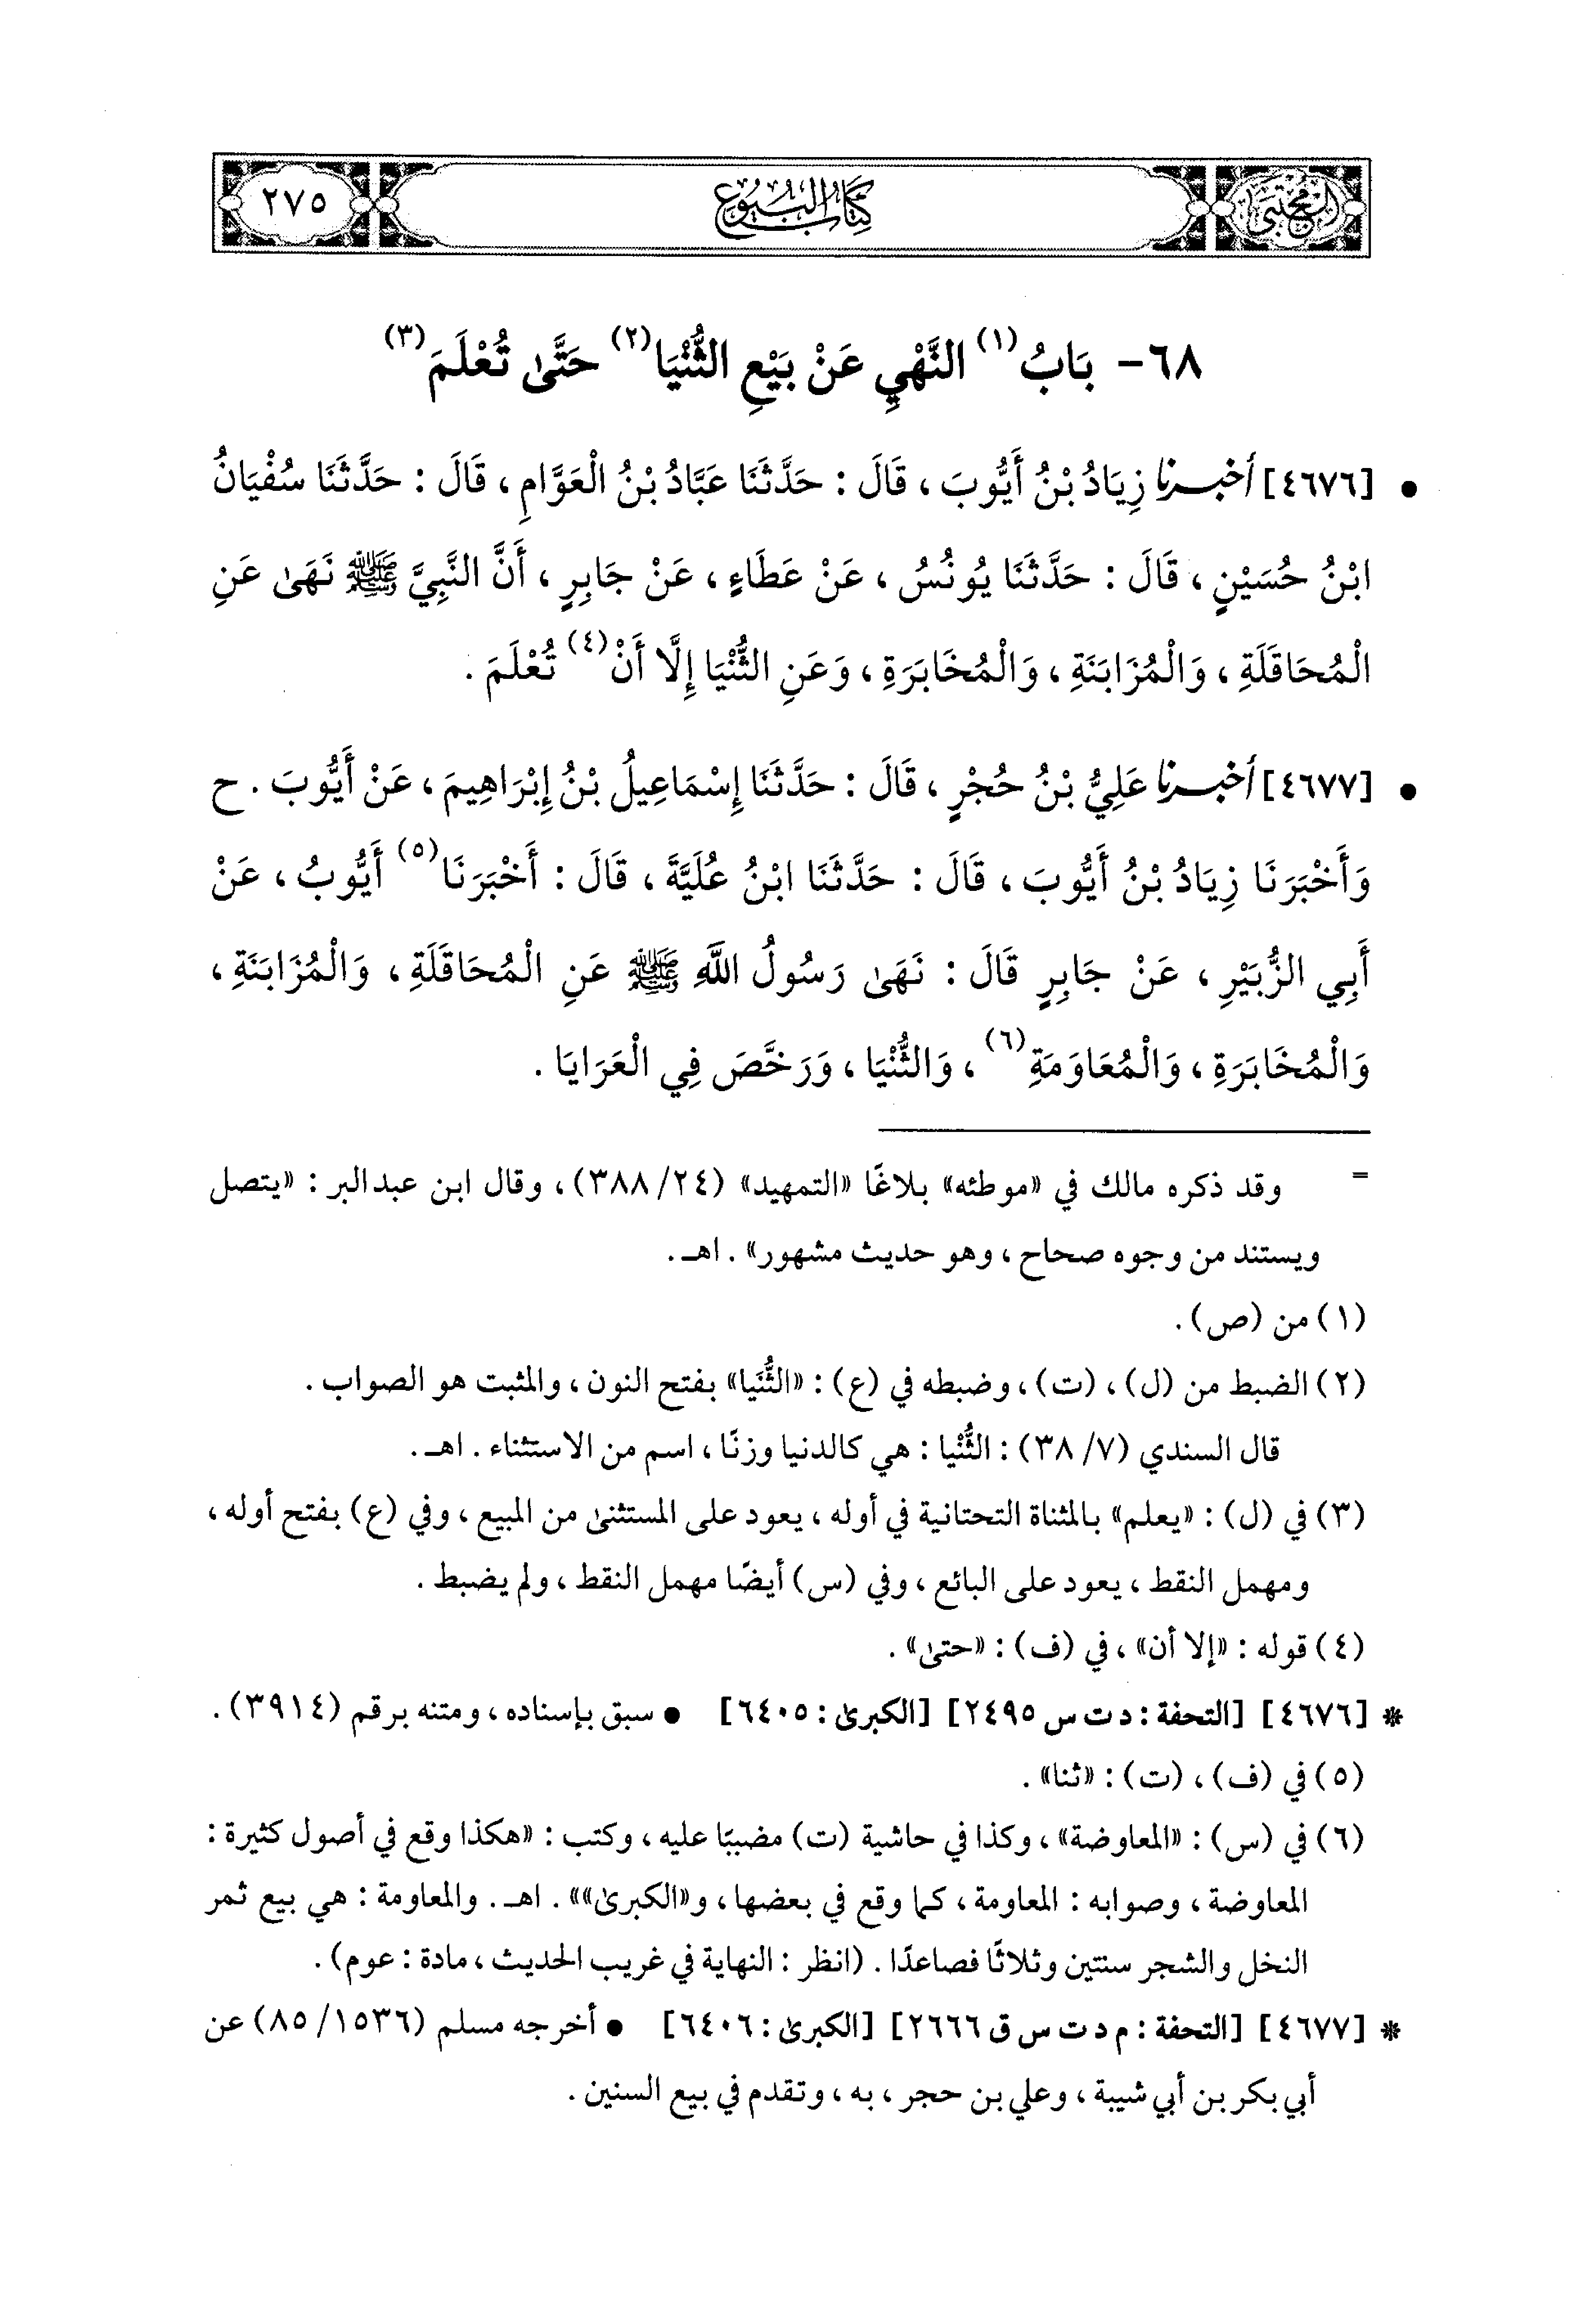 المجتبى
كتاب البيوع
٢٧٥
٦٨- بَابُ(١) النَّهْيِ عَنْ بَيْعِ الثُّنْيَا(٢) حَتَّىٰ تُعْلَمَ(٣)
• [٤٦٧٦] أخبرنا زِيَادُ بْنُ أَيُّوبَ ، قَالَ : حَدَّثَنَا عَبَّادُ بْنُ الْعَوَّامِ ، قَالَ : حَدَّثَنَا سُفْيَانُ
ابْنُ حُسَيْنٍ ، قَالَ : حَدَّثَنَا يُونُسُ ، عَنْ عَطَاءٍ ، عَنْ جَابِرٍ ، أَنَّ النَّبِيَّ ﷺ نَهَىٰ عَنِ
الْمُحَاقَلَةِ ، وَالْمُزَابَنَةِ ، وَالْمُخَابَرَةِ ، وَعَنِ الثُّنْيَا إِلَّا أَنْ(٤) تُعْلَمَ .
• [٤٦٧٧] أخبرنا عَلِيُّ بْنُ حُجْرٍ ، قَالَ : حَدَّثَنَا إِسْمَاعِيلُ بْنُ إِبْرَاهِيمَ ، عَنْ أَيُّوبَ . ح
وَأَخْبَرَنَا زِيَادُ بْنُ أَيُّوبَ ، قَالَ : حَدَّثَنَا ابْنُ عُلَيَّةَ ، قَالَ : أَخْبَرَنَا(٥) أَيُّوبُ ، عَنْ
أَبِي الزُّبَيْرِ ، عَنْ جَابِرٍ قَالَ : نَهَىٰ رَسُولُ اللَّهِ ﷺ عَنِ الْمُحَاقَلَةِ ، وَالْمُزَابَنَةِ ،
وَالْمُخَابَرَةِ ، وَالْمُعَاوَمَةِ(٦) ، وَالثُّنْيَا ، وَرَخَّصَ فِي الْعَرَايَا .
= وقد ذكره مالك في «موطئه» بلاغًا «التمهيد» (٢٤/ ٣٨٨)، وقال ابن عبدالبر : «يتصل
ويستند من وجوه صحاح ، وهو حديث مشهور» . اهـ .
(١) من (ص) .
(٢) الضبط من (ل) ، (ت) ، وضبطه في (ع) : «الثُّنَيا» بفتح النون ، والمثبت هو الصواب .
قال السندي (٧/ ٣٨) : الثُّنْيا : هي كالدنيا وزنًا ، اسم من الاستثناء . اهـ .
(٣) في (ل) : «يعلم» بالمثناة التحتانية في أوله ، يعود على المستثنىٰ من المبيع ، وفي (ع) بفتح أوله ،
ومهمل النقط ، يعود على البائع ، وفي (س) أيضًا مهمل النقط ، ولم يضبط .
(٤) قوله : «إلا أن» ، في (ف) : «حتىٰ» .
* [٤٦٧٦] [التحفة : د ت س ٢٤٩٥] [الكبرىٰ : ٦٤٠٥] • سبق بإسناده ، ومتنه برقم (٣٩١٤) .
(٥) في (ف) ، (ت) : «ثنا» .
(٦) في (س) : «المعاوضة» ، وكذا في حاشية (ت) مضببًا عليه ، وكتب : «هكذا وقع في أصول كثيرة :
المعاوضة ، وصوابه : المعاومة ، كما وقع في بعضها ، و«الكبرىٰ»» . اهـ . والمعاومة : هي بيع ثمر
النخل والشجر سنتين وثلاثًا فصاعدًا . (انظر : النهاية في غريب الحديث ، مادة : عوم) .
* [٤٦٧٧] [التحفة : م د ت س ق ٢٦٦٦] [الكبرىٰ : ٦٤٠٦] • أخرجه مسلم (١٥٣٦/ ٨٥) عن
أبي بكر بن أبي شيبة ، وعلي بن حجر ، به ، وتقدم في بيع السنين .